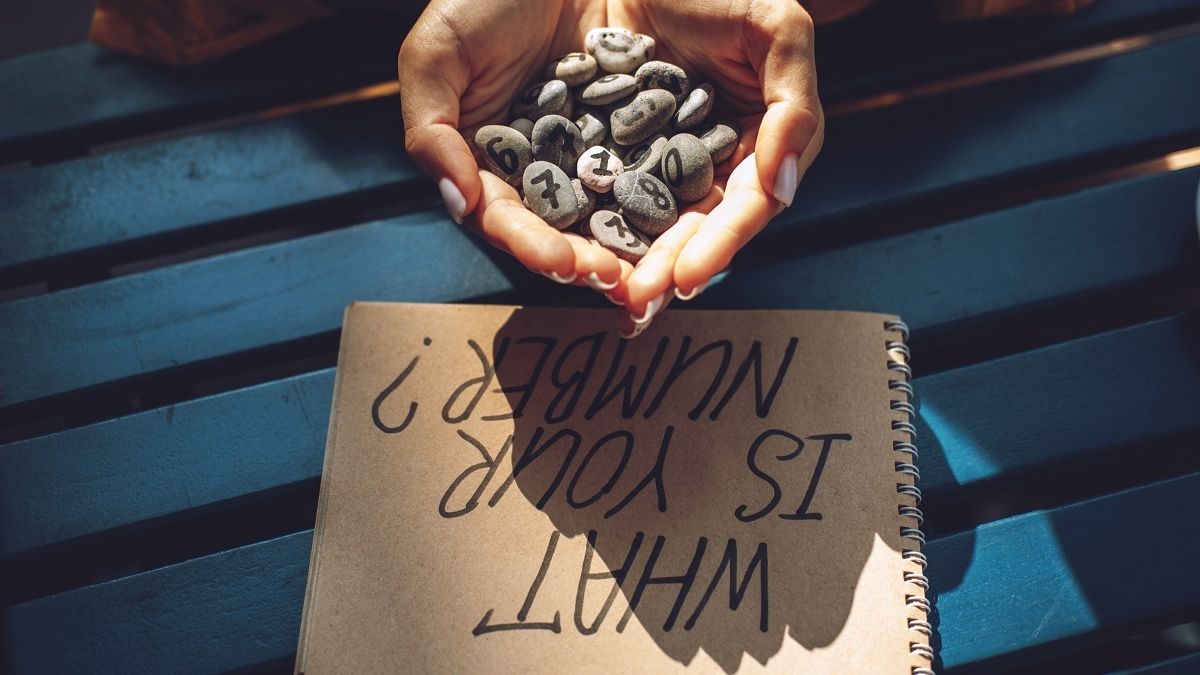 6
0
1
7
8
WHAT
IS YOUR
NUMBER?